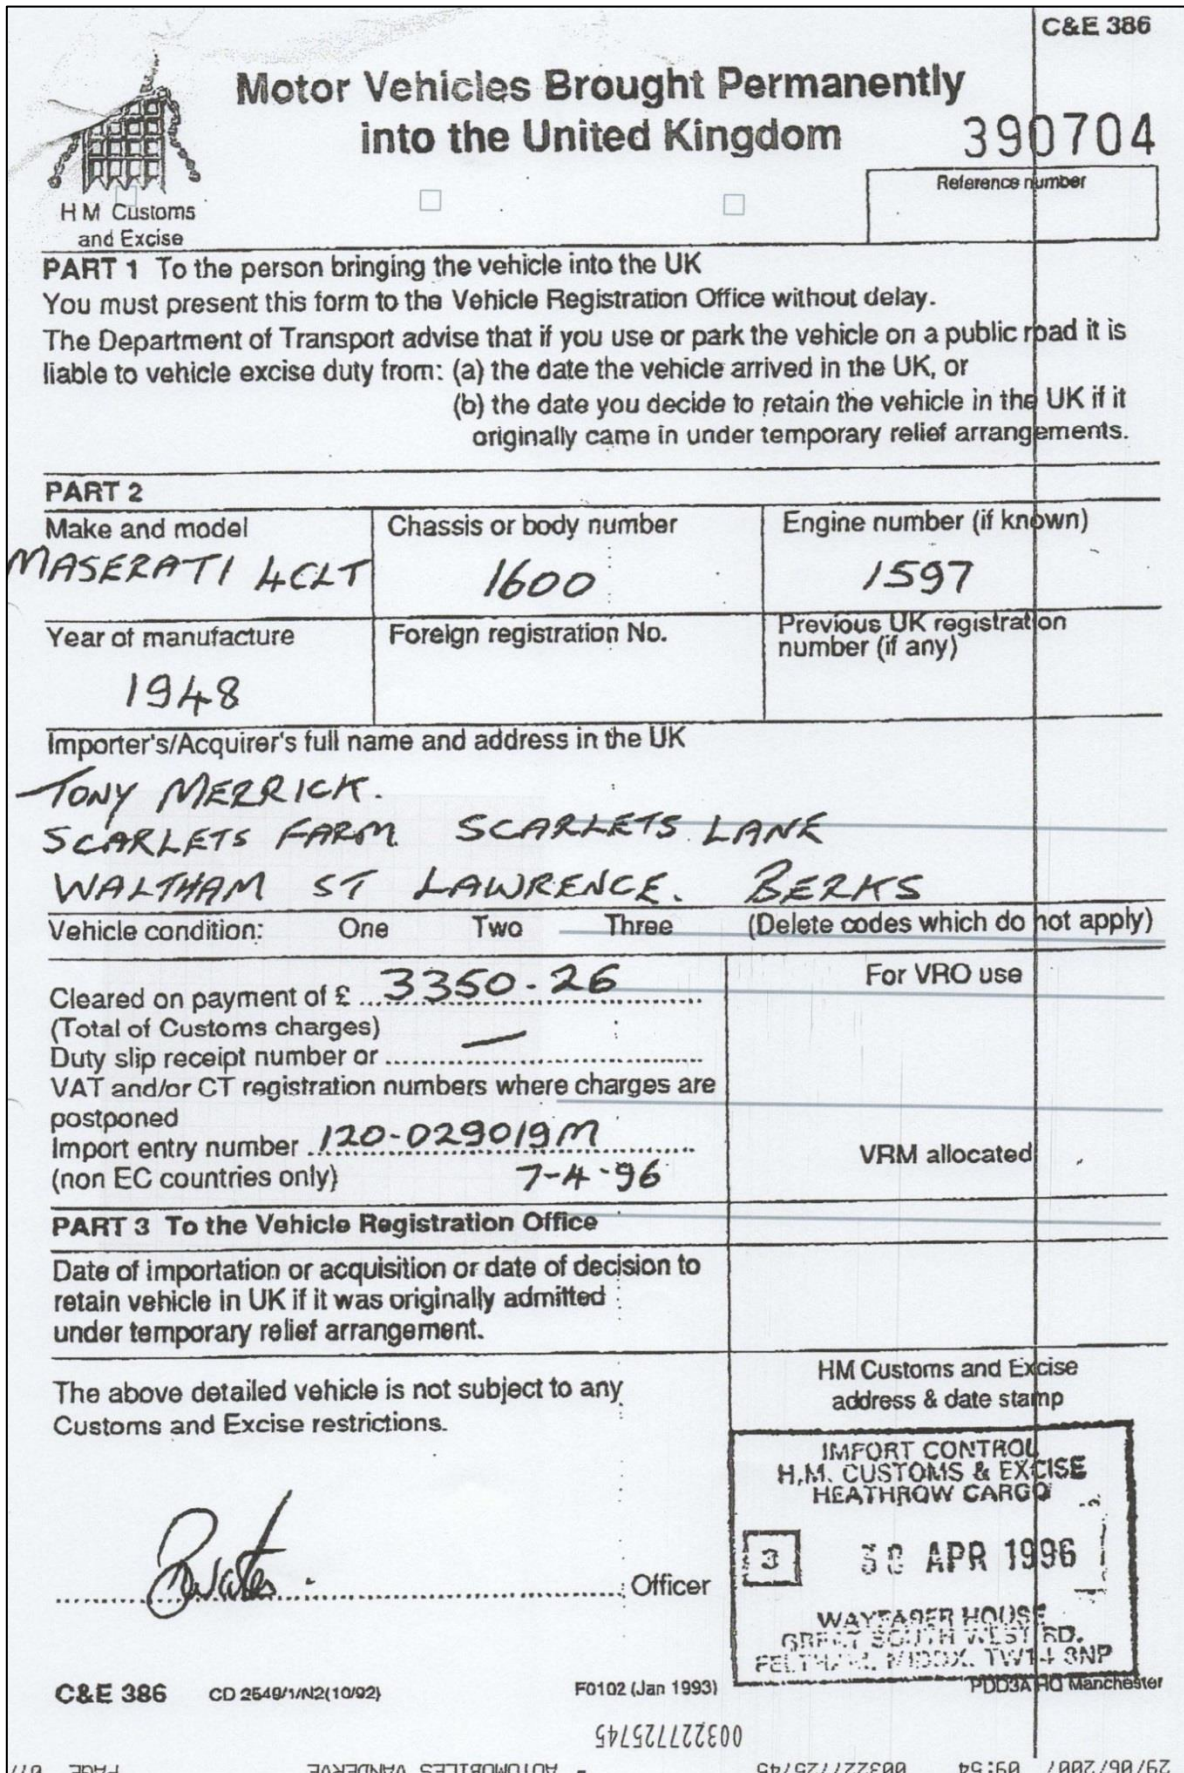 C&E 386
Motor Vehicles Brought Permanently
into the United Kingdom
390704
Reference number
H M Customs
and Excise
PART 1 To the person bringing the vehicle into the UK
You must present this form to the Vehicle Registration Office without delay.
The Department of Transport advise that if you use or park the vehicle on a public road it is
liable to vehicle excise duty from: (a) the date the vehicle arrived in the UK, or
(b) the date you decide to retain the vehicle in the UK if it
originally came in under temporary relief arrangements.
PART 2
Make and model
MASERATI 4CLT
Chassis or body number
1600
Engine number (if known)
1597
Year of manufacture
1948
Foreign registration No.
Previous UK registration
number (if any)
Importer's/Acquirer's full name and address in the UK
TONY MERRICK.
SCARLETS FARM SCARLETS LANE
WALTHAM ST LAWRENCE. BERKS
Vehicle condition: One Two Three (Delete codes which do not apply)
Cleared on payment of £ 3350-26
(Total of Customs charges)
Duty slip receipt number or —
VAT and/or CT registration numbers where charges are
postponed
Import entry number 120-029019M
(non EC countries only) 7-4-96
For VRO use
VRM allocated
PART 3 To the Vehicle Registration Office
Date of importation or acquisition or date of decision to
retain vehicle in UK if it was originally admitted
under temporary relief arrangement.
The above detailed vehicle is not subject to any
Customs and Excise restrictions.
Officer
HM Customs and Excise
address & date stamp
IMPORT CONTROL
H.M. CUSTOMS & EXCISE
HEATHROW CARGO
3
30 APR 1996
WAYFARER HOUSE
GREAT SOUTH WEST RD.
FELTHAM, MIDDX. TW14 8NP
C&E 386 CD 2549/1/N2(10/92) F0102 (Jan 1993) PDD3A HQ Manchester
003227725745
29/06/2007 09:54 003227725745 AUTOMOBILES VANDERVE PAGE